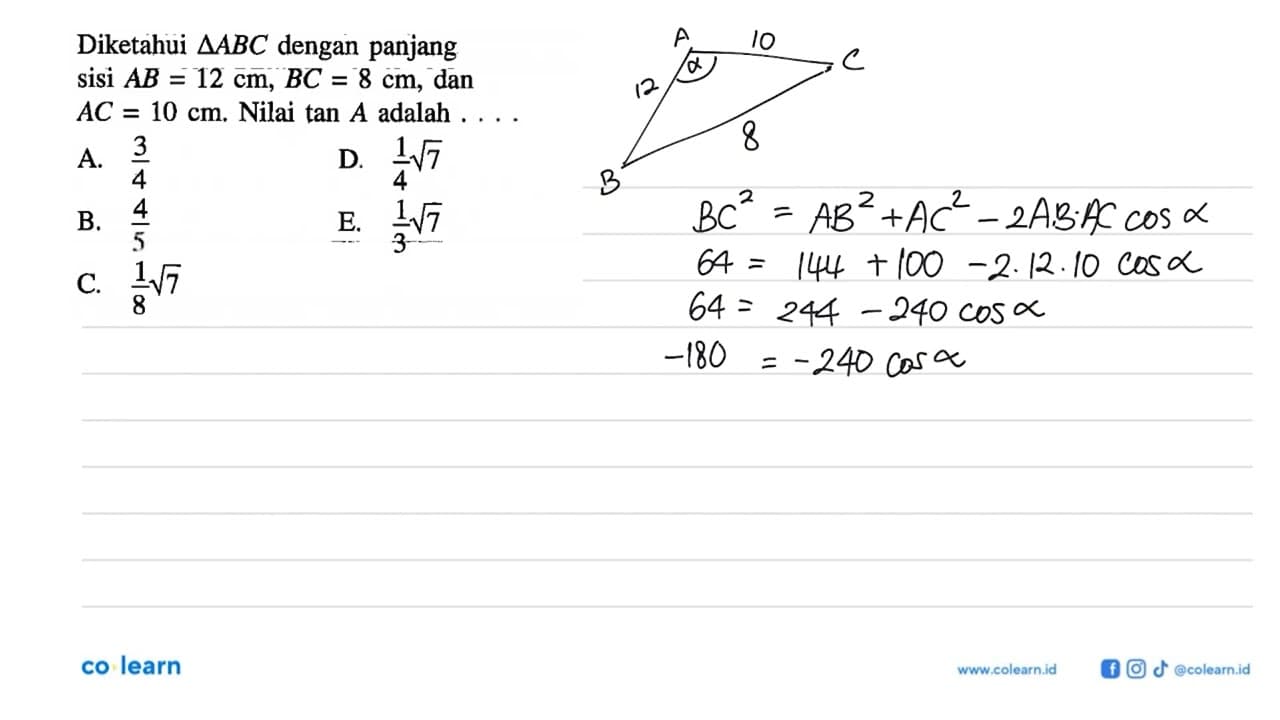 Diketahui ΔABC dengan panjang
sisi AB = 12 cm, BC = 8 cm, dan
AC = 10 cm. Nilai tan A adalah . . . .
A. 3/4 D. 1/4√7
B. 4/5 E. 1/3√7
C. 1/8√7
A 10 C
α
12
8
B
BC² = AB² + AC² - 2AB.AC cos α
64 = 144 + 100 - 2.12.10 cos α
64 = 244 - 240 cos α
-180 = -240 cos α
co learn
www.colearn.id @colearn.id